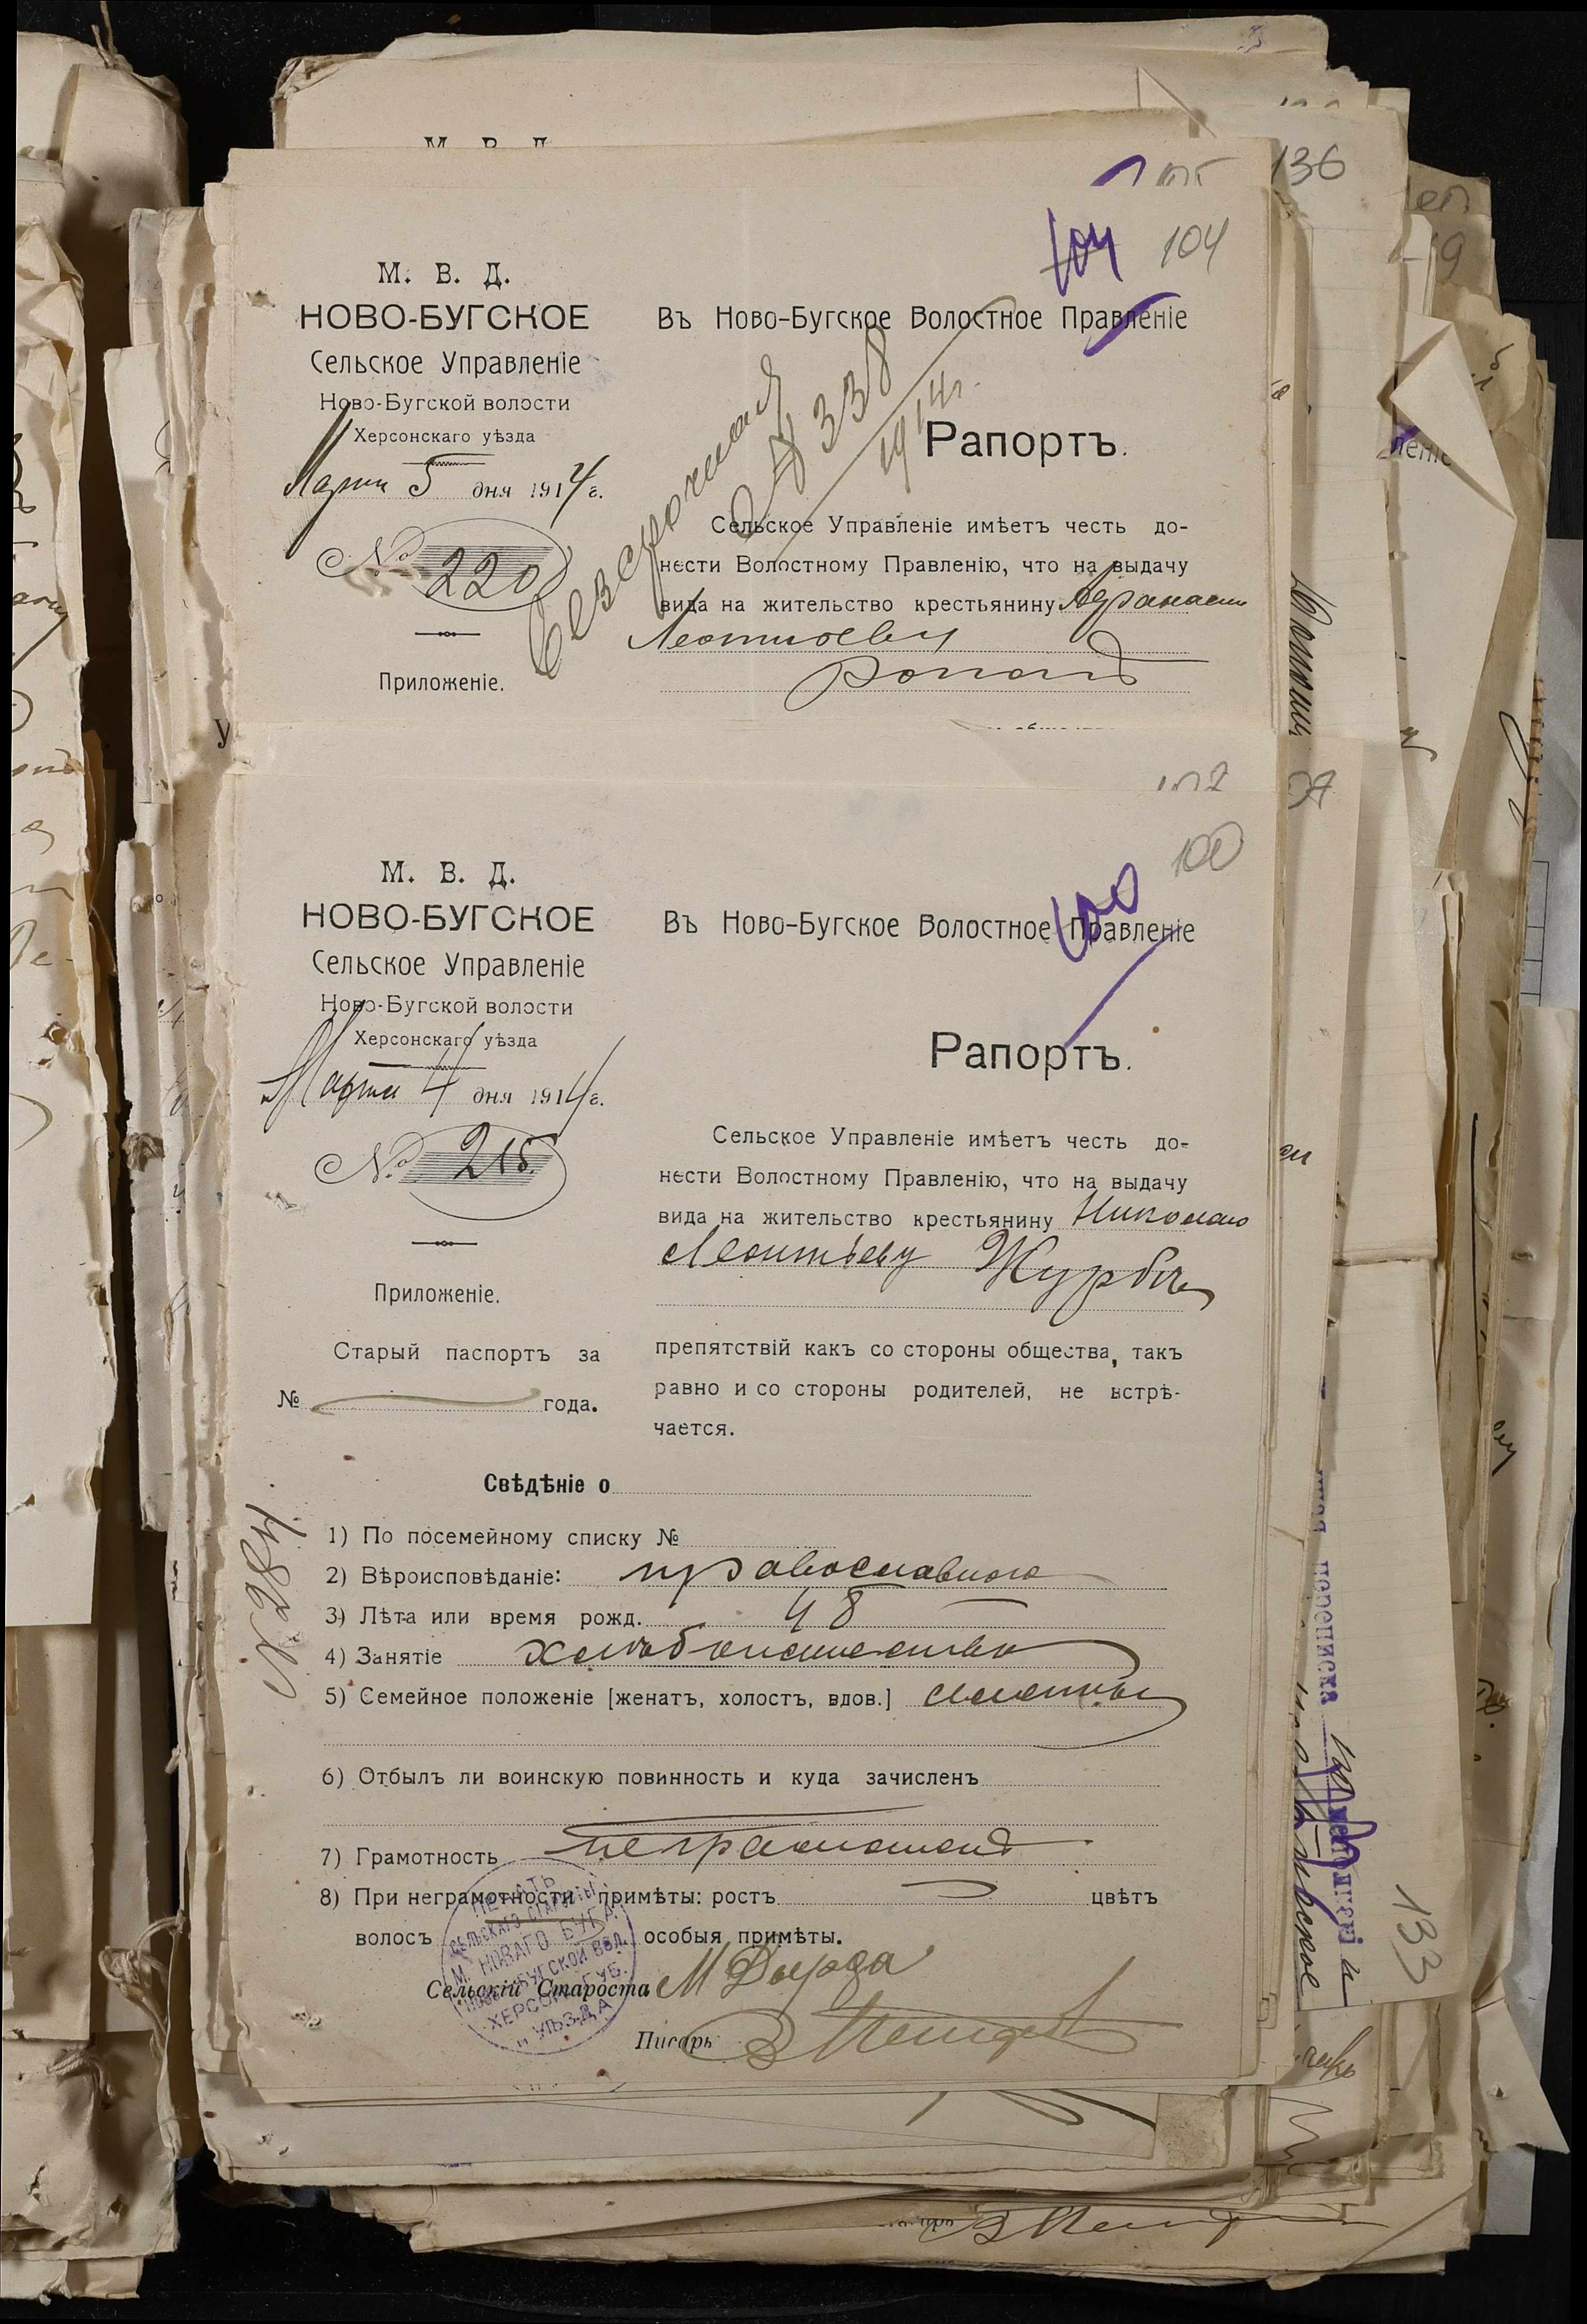 М. В. Д.
136
104 104
М. В. Д.
НОВО-БУГСКОЕ
Сельское Управленіе
Ново-Бугской волости
Херсонскаго уѣзда
Марта 5 дня 1914 г.
№ 220
Приложеніе.
Въ Ново-Бугское Волостное Правленіе
безсрочная
338
1914 г.
Рапортъ.
Сельское Управленіе имѣетъ честь до-
нести Волостному Правленію, что на выдачу
вида на жительство крестьянину Афанасію
Леонтьеву
100
100
М. В. Д.
НОВО-БУГСКОЕ
Сельское Управленіе
Ново-Бугской волости
Херсонскаго уѣзда
Марта 4 дня 1914 г.
№ 215
Приложеніе.
Старый паспортъ за
№ года.
Въ Ново-Бугское Волостное Правленіе
Рапортъ.
Сельское Управленіе имѣетъ честь до-
нести Волостному Правленію, что на выдачу
вида на жительство крестьянину Николаю
Леонтьеву Журбѣ
препятствій какъ со стороны общества, такъ
равно и со стороны родителей, не встрѣ-
чается.
Свѣдѣніе о
1) По посемейному списку №
2) Вѣроисповѣданіе: православного
3) Лѣта или время рожд. 48
4) Занятіе хлѣбопашество
5) Семейное положеніе [женатъ, холостъ, вдов.]
6) Отбылъ ли воинскую повинность и куда зачисленъ
7) Грамотность неграмотенъ
8) При неграмотности примѣты: ростъ цвѣтъ
волосъ особыя примѣты.
Сельскій Староста М
Писарь
ПЕЧАТЬ
СЕЛЬСКАГО СТАРОСТЫ
М. НОВАГО БУГА
НОВО-БУГСКОЙ ВОЛ.
ХЕРСОН. ГУБ.
И УѢЗДА
переписка
133